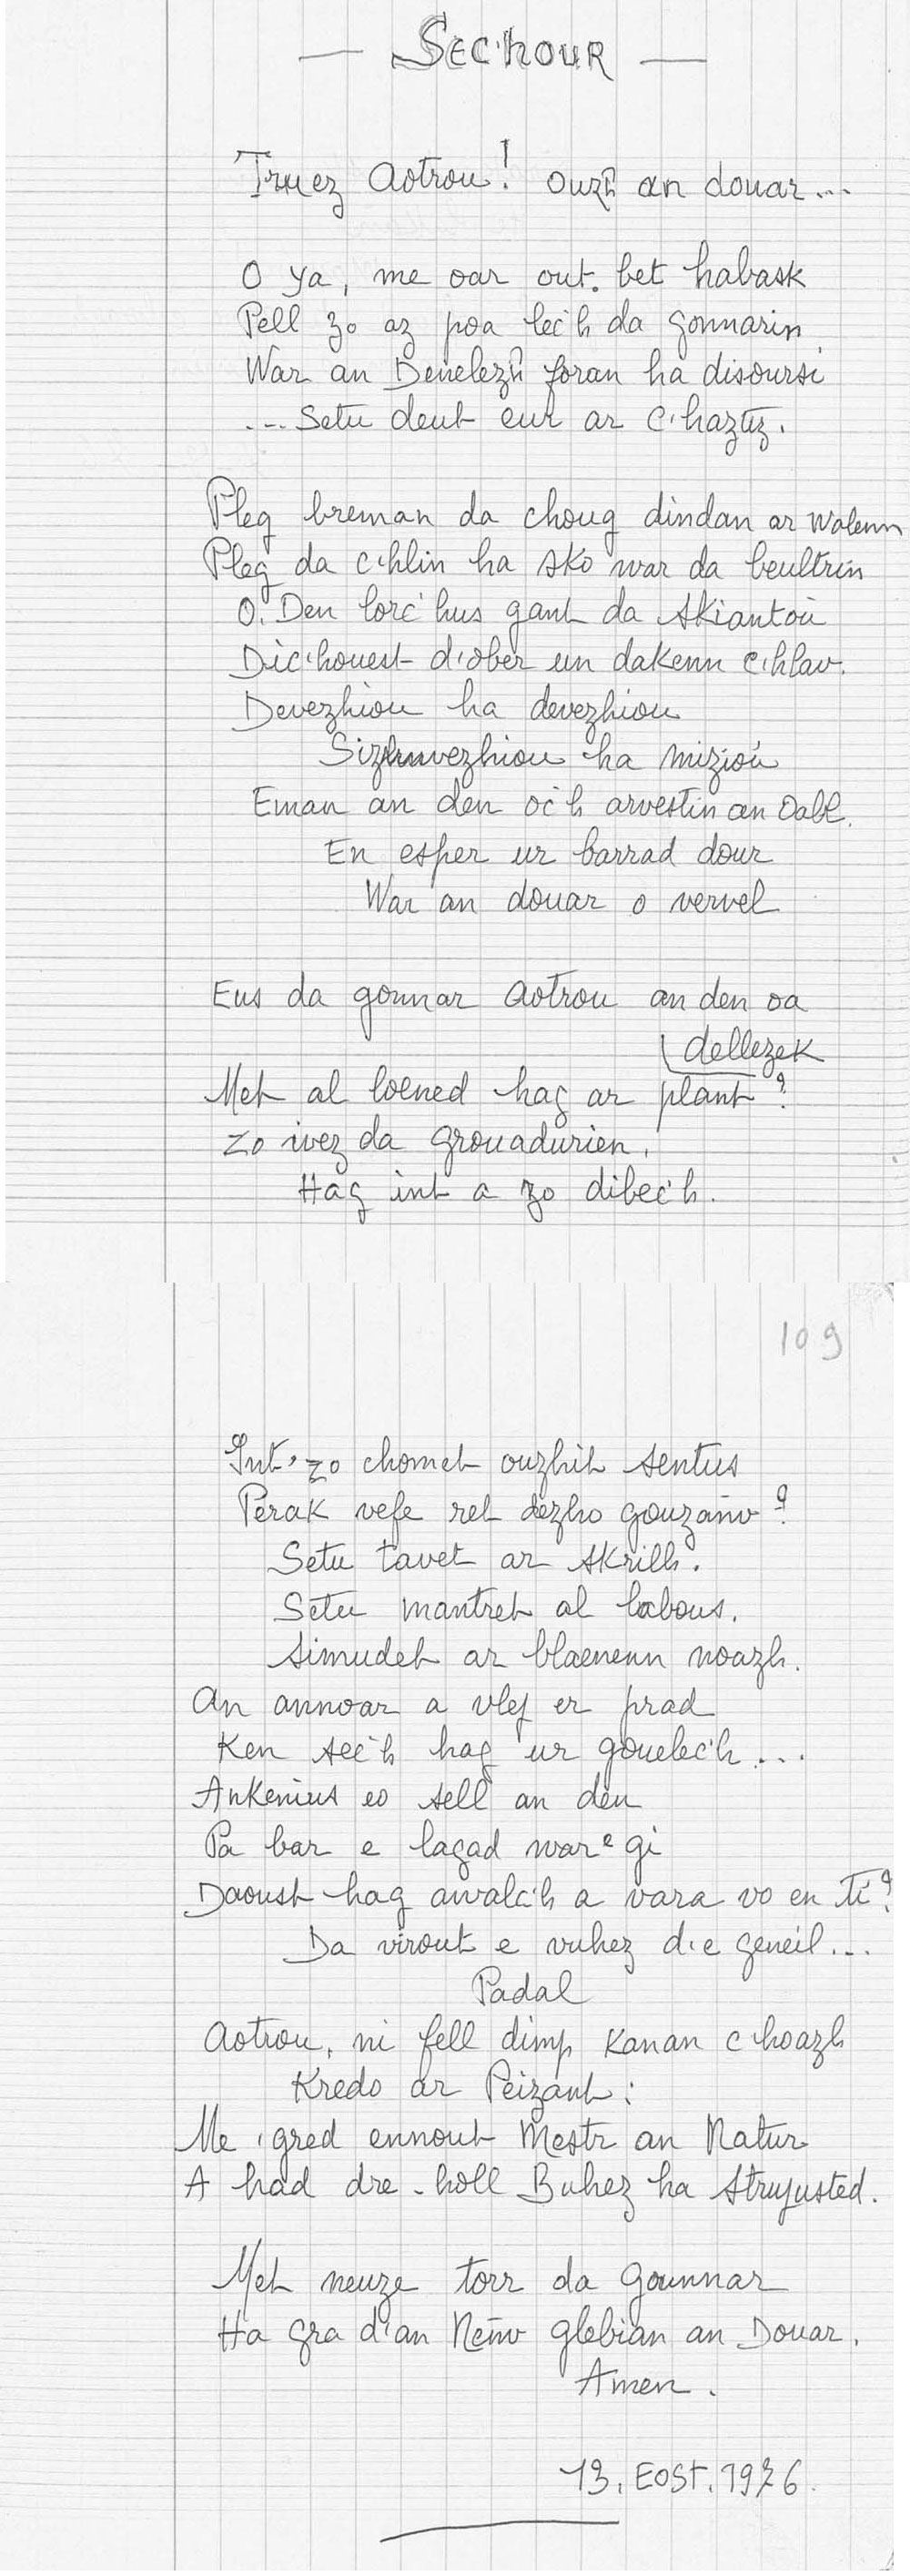 — SEC'HOUR —
Truez Aotrou! ouzh an douar...
O ya, me oar out bet habask
Pell zo az poa lec'h da gonnarin
War an Denelezh foran ha disoursi
... Setu deut eur ar c'haztiz.
Pleg breman da choug dindan ar walenn
Pleg da c'hlin ha sko war da beultrin
O. Den lorc'hus gant da skiantoù
Dic'houest d'ober un dakenn c'hlav.
Devezhiou ha devezhiou
Sizhunvezhiou ha miziou
Eman an den oc'h arvestin an Oabl.
En esper ur barrad dour
War an douar o vervel
Eus da gonnar Aotrou an den oa
dellezek
Met al loened hag ar plant?
zo ivez da grouadurien.
Hag int a zo dibec'h.
109
Int, zo chomet ouzhit sentus
Perak vefe ret dezho gouzañv?
Setu tavet ar skrilh.
Setu mantret al labous.
simudet ar blaenenn noazh.
An annoar a vlej er prad
Ken sec'h hag ur gouelec'h...
Ankenius eo sell an den
Pa bar e lagad war e gi
Daoust hag awalc'h a vara vo en ti?
Da virout e vuhez d'e geneil...
Padal
Aotrou, ni fell dimp kanan c'hoazh
Kredo ar Peizant:
Me 'gred ennout Mestr an Natur
A had dre-holl Buhez ha Strujusted.
Met neuze torr da gounnar
Ha gra d'an Neñv glebian an Douar.
Amen.
13. EOST. 1976.